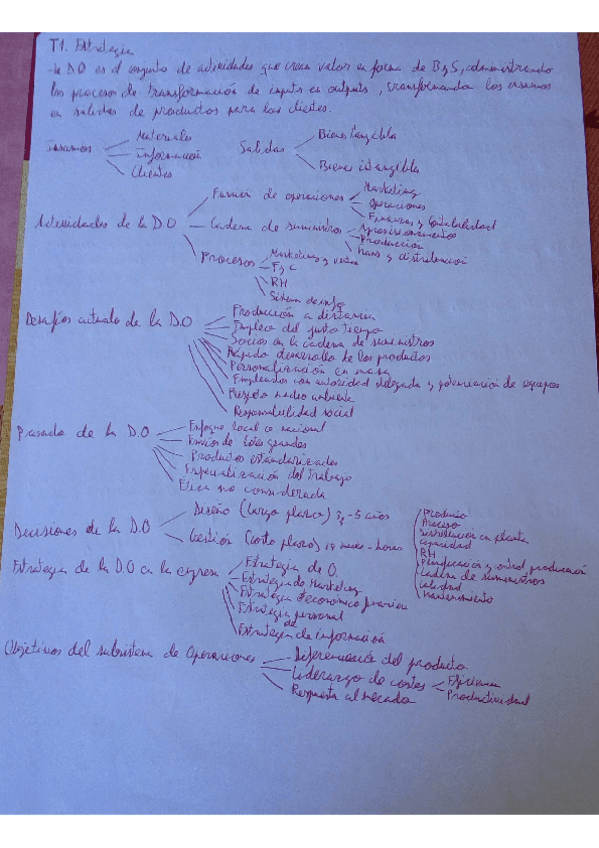 T1. Estrategia
- la D.O es el conjunto de actividades que crean valor en forma de B y S, administrando
los procesos de transformación de inputs en outputs, transformando los insumos
en salidas de productos para los clientes.
Insumos
Materiales
Información
Clientes
Salidas
Bienes tangibles
Bienes intangibles
Actividades de la D.O
Función de operaciones
Marketing
Operaciones
Finanzas y Contabilidad
Cadena de suministros
Aprovisionamientos
Producción
Trans y distribución
Procesos
Marketing y ventas
F y C
RH
Sistema de info
Desafíos actuales de la D.O
Producción a distancia
Empleo del justo tiempo
Socios en la cadena de suministros
Rápido desarrollo de los productos
Personalización en masa
Empleados con autoridad delegada y potenciación de equipos
Respeto medio ambiente
Responsabilidad social
Pasado de la D.O
Enfoque local o nacional
Envíos de lotes grandes
Productos estandarizados
Especialización del trabajo
Ética no considerada
Decisiones de la D.O
Diseño (largo plazo) 3 - 5 años
Gestión (corto plazo) 18 meses - horas
Producto
Proceso
Distribución en planta
Capacidad
RH
Planificación y control producción
Cadena de suministros
Calidad
Mantenimiento
Estrategia de la D.O en la empresa
Estrategia de O.
Estrategia de Marketing
Estrategia económico
Estrategia personal
Estrategia de información
Objetivos del subsistema de Operaciones
Diferenciación del producto
Liderazgo de costes
Eficiencia
Productividad
Respuesta al mercado